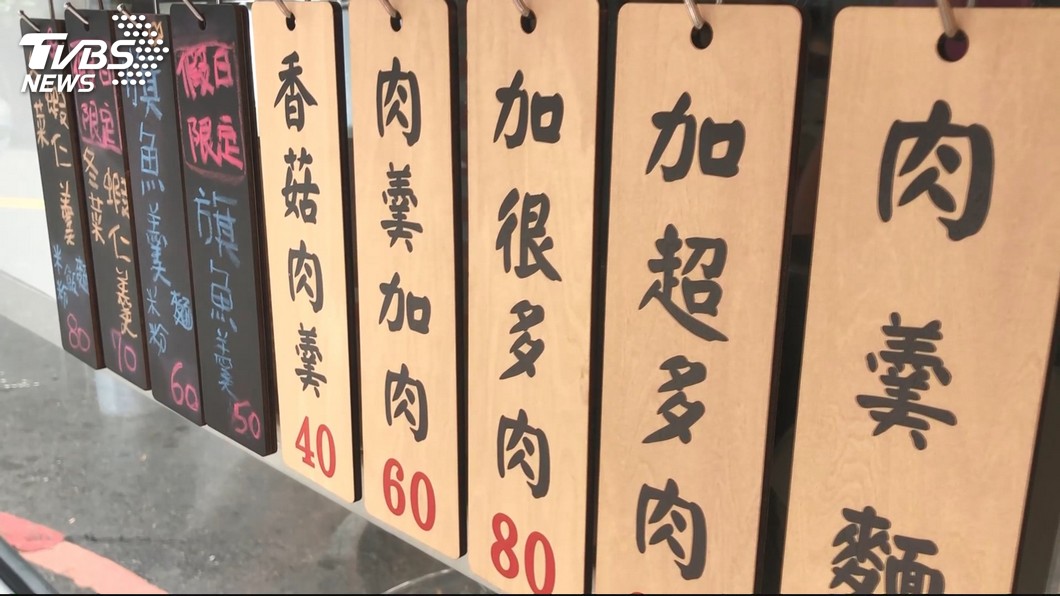 TVBS
NEWS
蝦仁羹
米粉
80
限定
冬菜蝦仁羹
70
旗魚羹
米粉
麵
60
假日
限定
旗魚羹
50
香菇肉羹
40
肉羹加肉
60
加很多肉
80
加超多肉
肉羹麵